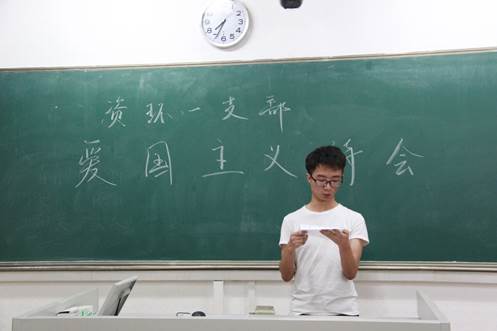 资环一支部
爱国主义诗会